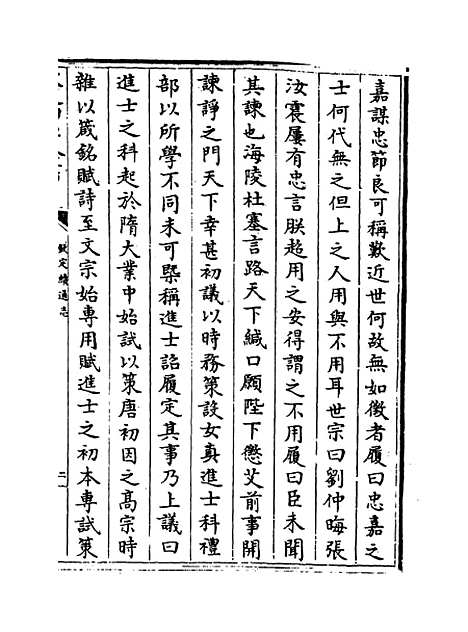 嘉謀忠節良可稱歎近世何故無如徵者履曰忠嘉之
士何代無之但上之人用與不用耳世宗曰劉仲晦張
汝霖屢有忠言朕超用之安得謂之不用履曰臣未聞
其諫也海陵杜塞言路天下緘口願陛下懲艾前事開
諫諍之門天下幸甚初議以時務策設女真進士科禮
部以所學不同未可槩稱進士詔履定其事乃上議曰
進士之科起於隋大業中始試以策唐初因之髙宗時
雜以箴銘賦詩至文宗始専用賦進士之初本専試策
欽定續通志